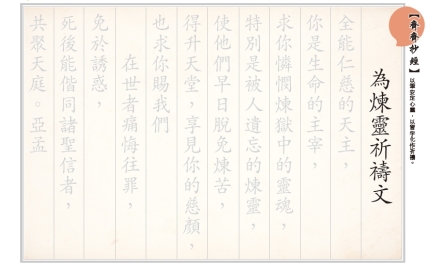 【齊齊抄經】
以筆安定心靈，以書寫化作祈禱。
為煉靈祈禱文
全能仁慈的天主，
你是生命的主宰，
求你憐憫煉獄中的靈魂，
特別是被人遺忘的煉靈，
使他們早日脫免煉苦，
得升天堂，享見你的慈顏，
也求你賜我們
在世者痛悔往罪，
免於誘惑，
死後能偕同諸聖信者，
共聚天庭。亞孟